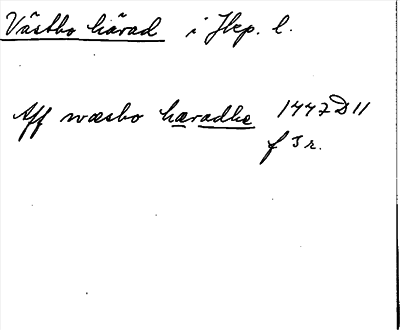 Västbo härad i Jkp. l.
Aff wæsbo hæradhe 1447 D 11
f 3 r.